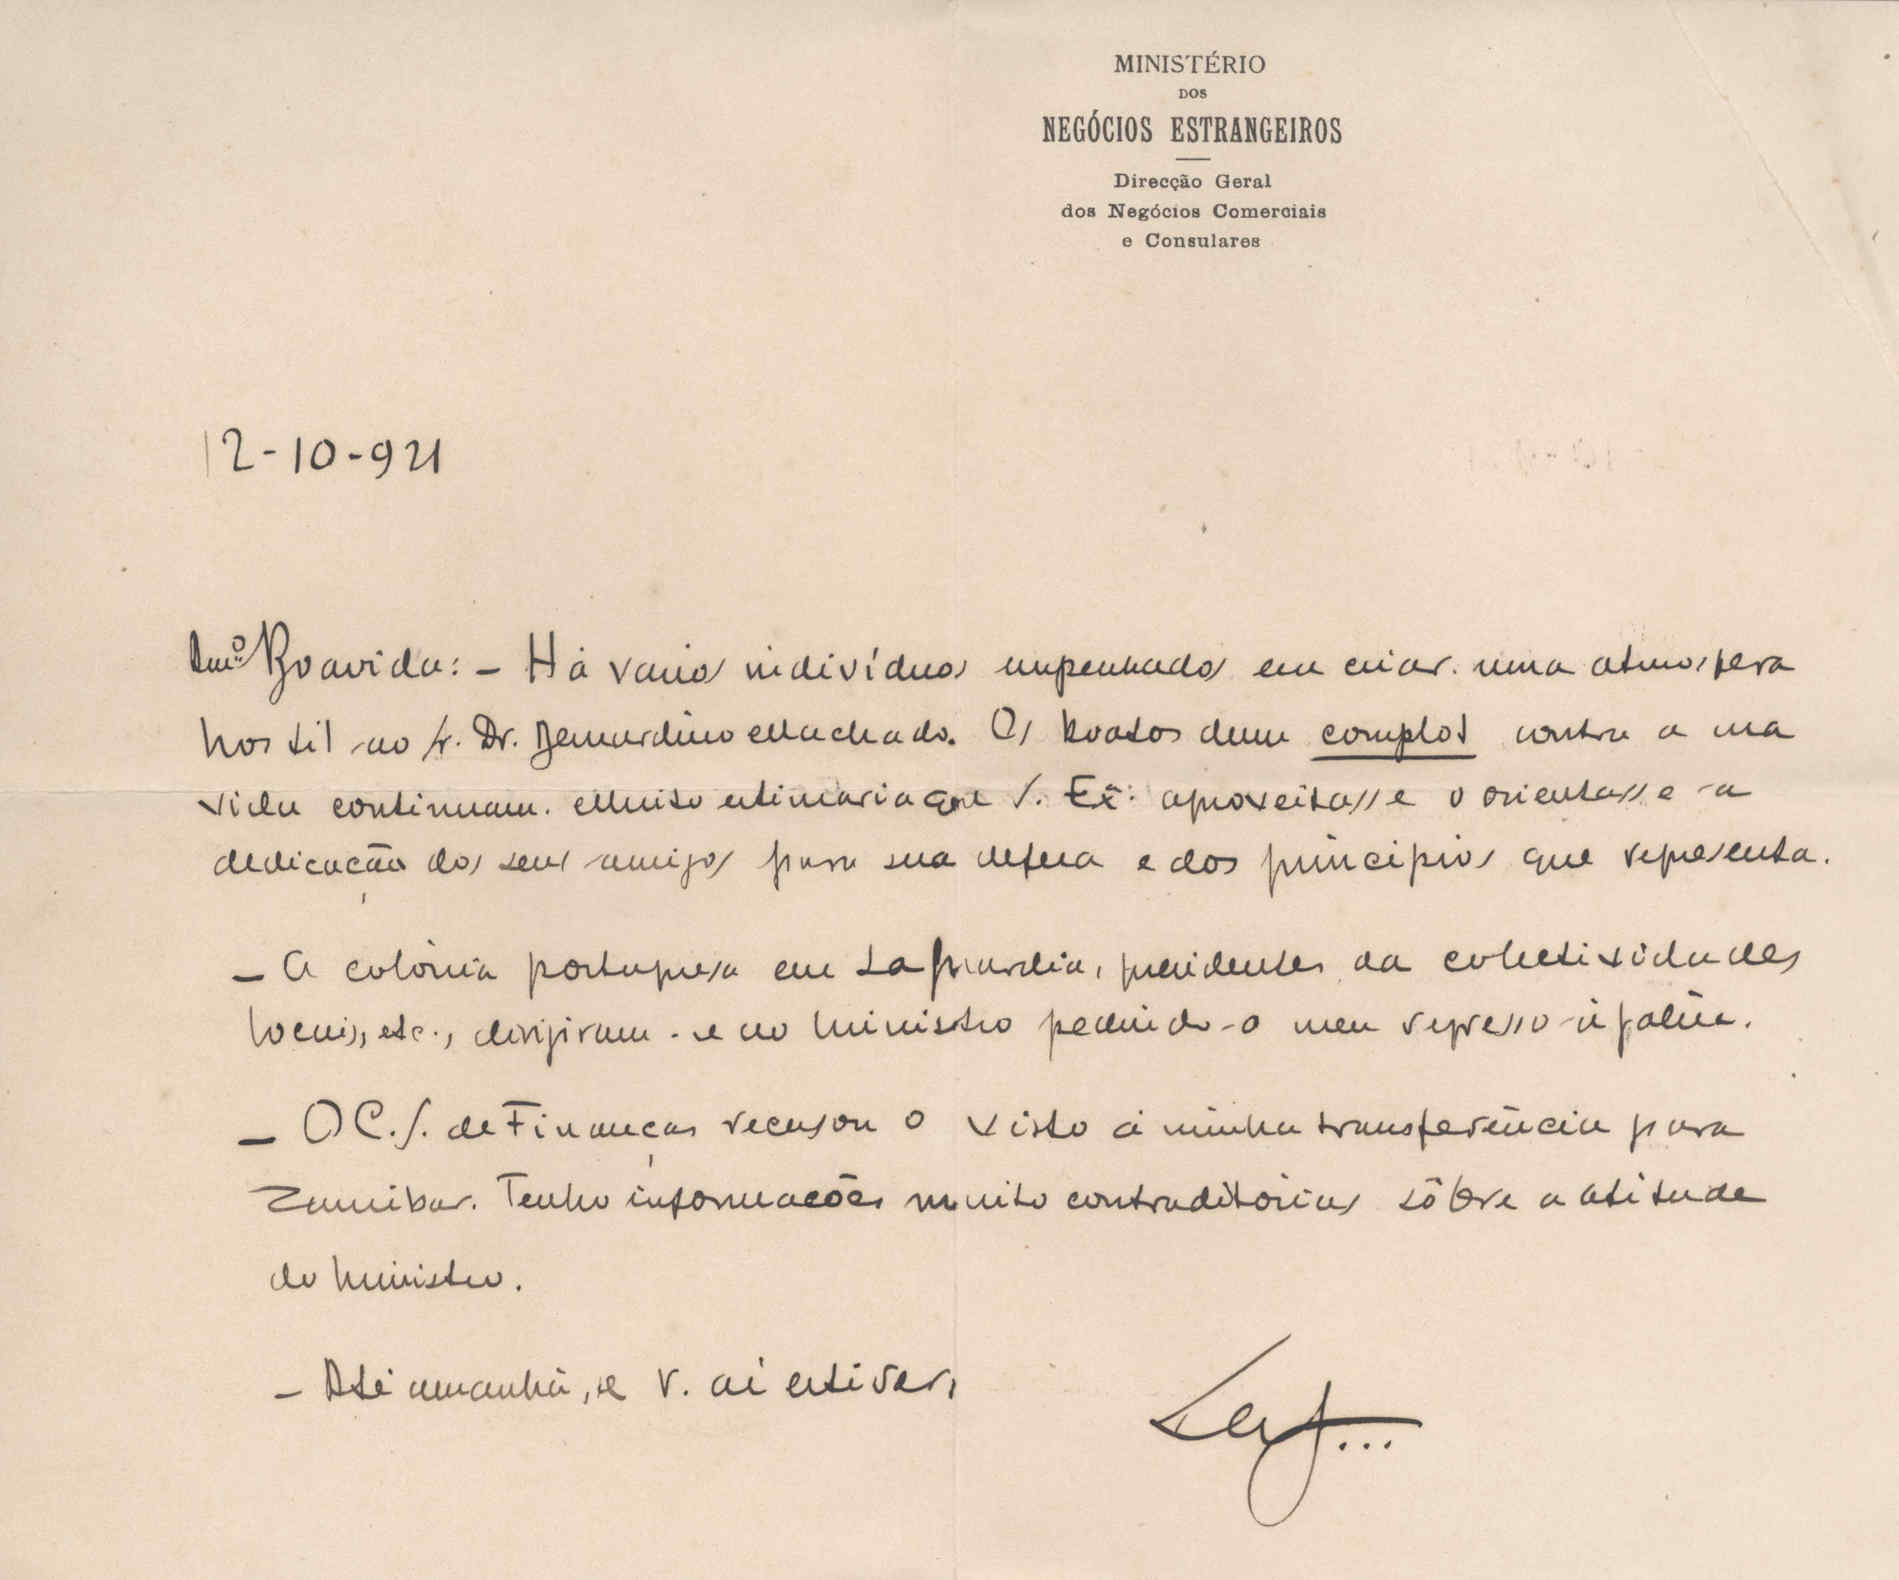 MINISTÉRIO
DOS
NEGÓCIOS ESTRANGEIROS
Direcção Geral
dos Negócios Comerciais
e Consulares
12-10-921
Amº Boavida: - Há varios indivíduos empenhados em criar uma atmosfera
hostil ao Sr. Dr. Bernardino Machado. Os boatos dum complot contra a sua
vida continuam. Muito estimaria que S. Exª aproveitasse e orientasse a
dedicação dos seus amigos para sua defesa e dos princípios que representa.
- A colónia portuguesa em La Guardia, presidentes da colectividades
locais, etc., dirigiram-se ao Ministro pedindo o meu regresso à Galiza.
- O C. S. de Finanças recusou o visto á minha transferência para
Zanzibar. Tenho informações muito contraditórias sôbre a atitude
do Ministro.
- Até amanhã, se V. aí estiver,